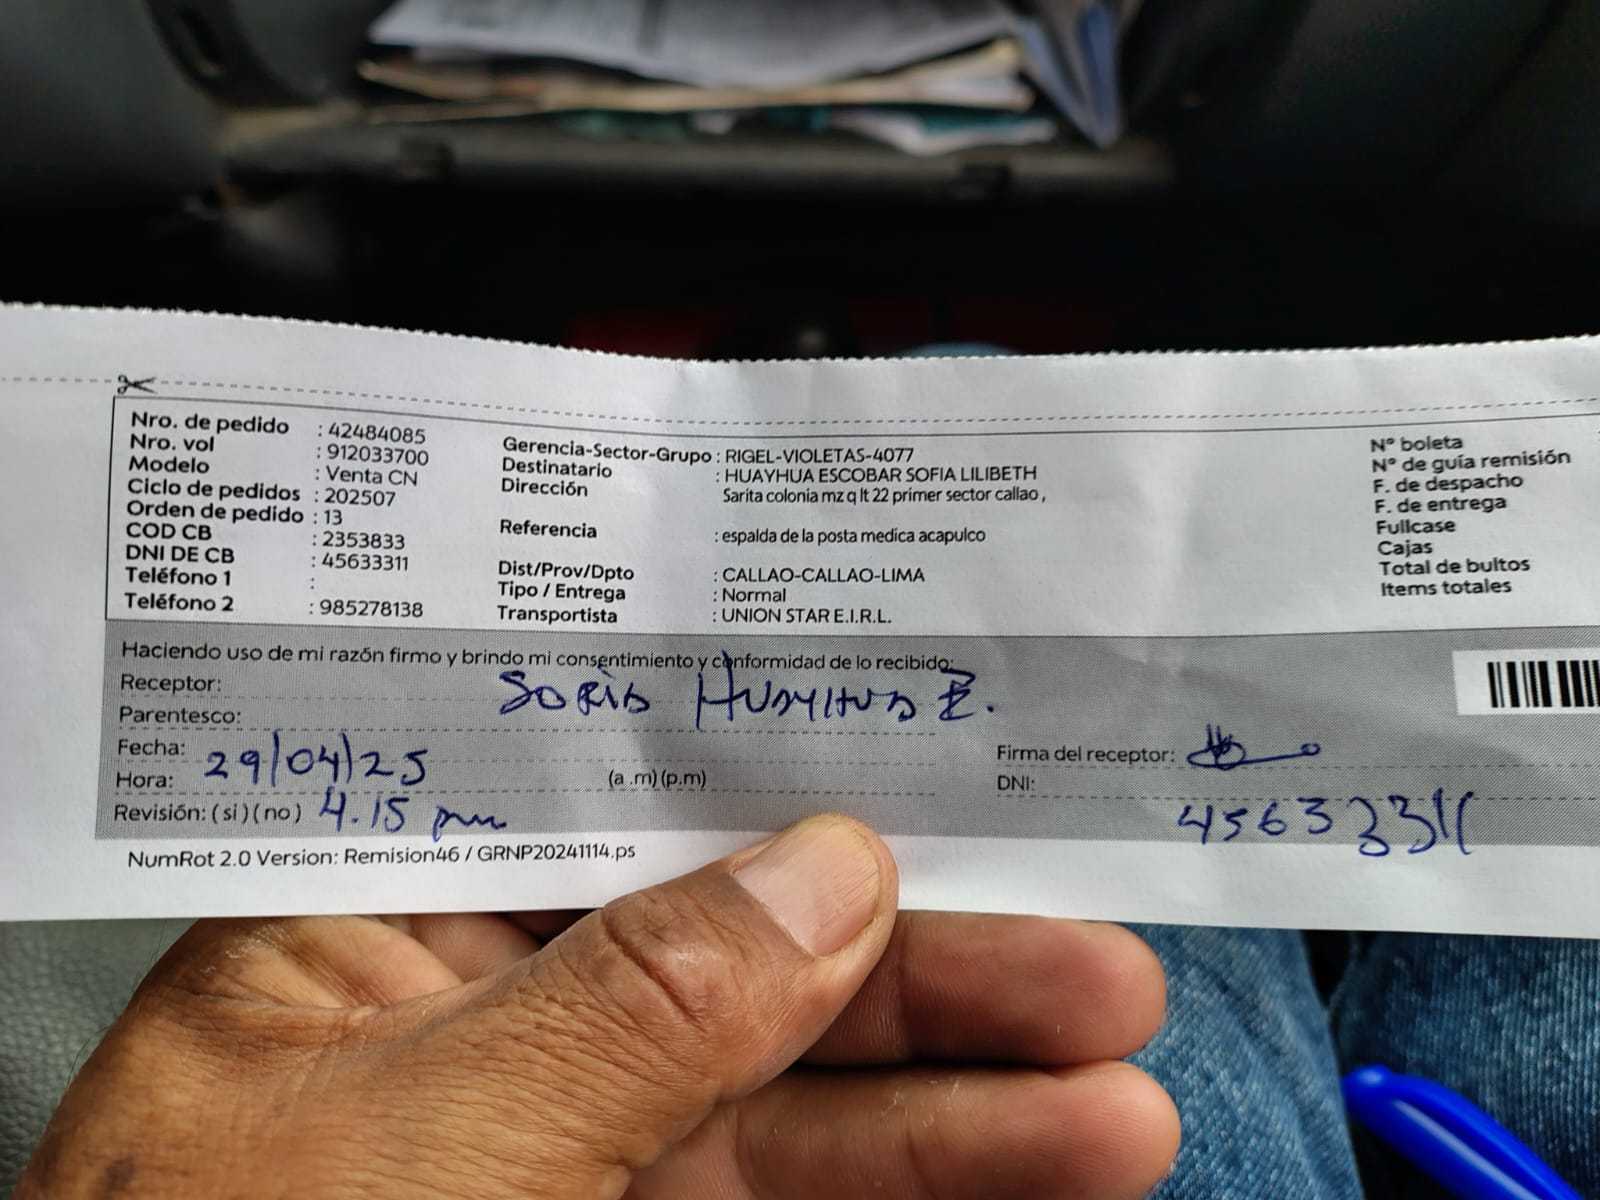 Nro. de pedido : 42484085
Nro. vol : 912033700
Modelo : Venta CN
Ciclo de pedidos : 202507
Orden de pedido : 13
COD CB : 2353833
DNI DE CB : 45633311
Teléfono 1 :
Teléfono 2 : 985278138
Gerencia-Sector-Grupo : RIGEL-VIOLETAS-4077
Destinatario : HUAYHUA ESCOBAR SOFIA LILIBETH
Dirección Sarita colonia mz q lt 22 primer sector callao ,
Referencia : espalda de la posta medica acapulco
Dist/Prov/Dpto : CALLAO-CALLAO-LIMA
Tipo / Entrega : Normal
Transportista : UNION STAR E.I.R.L.
N° boleta
N° de guía remisión
F. de despacho
F. de entrega
Fullcase
Cajas
Total de bultos
Items totales
Haciendo uso de mi razón firmo y brindo mi consentimiento y conformidad de lo recibido:
Receptor: Huayhua E.
Parentesco:
Fecha: 29/04/25
Hora: (a .m) (p.m)
Revisión: ( si ) ( no ) 4.15 pm
Firma del receptor:
DNI: 45633311
NumRot 2.0 Version: Remision46 / GRNP20241114.ps